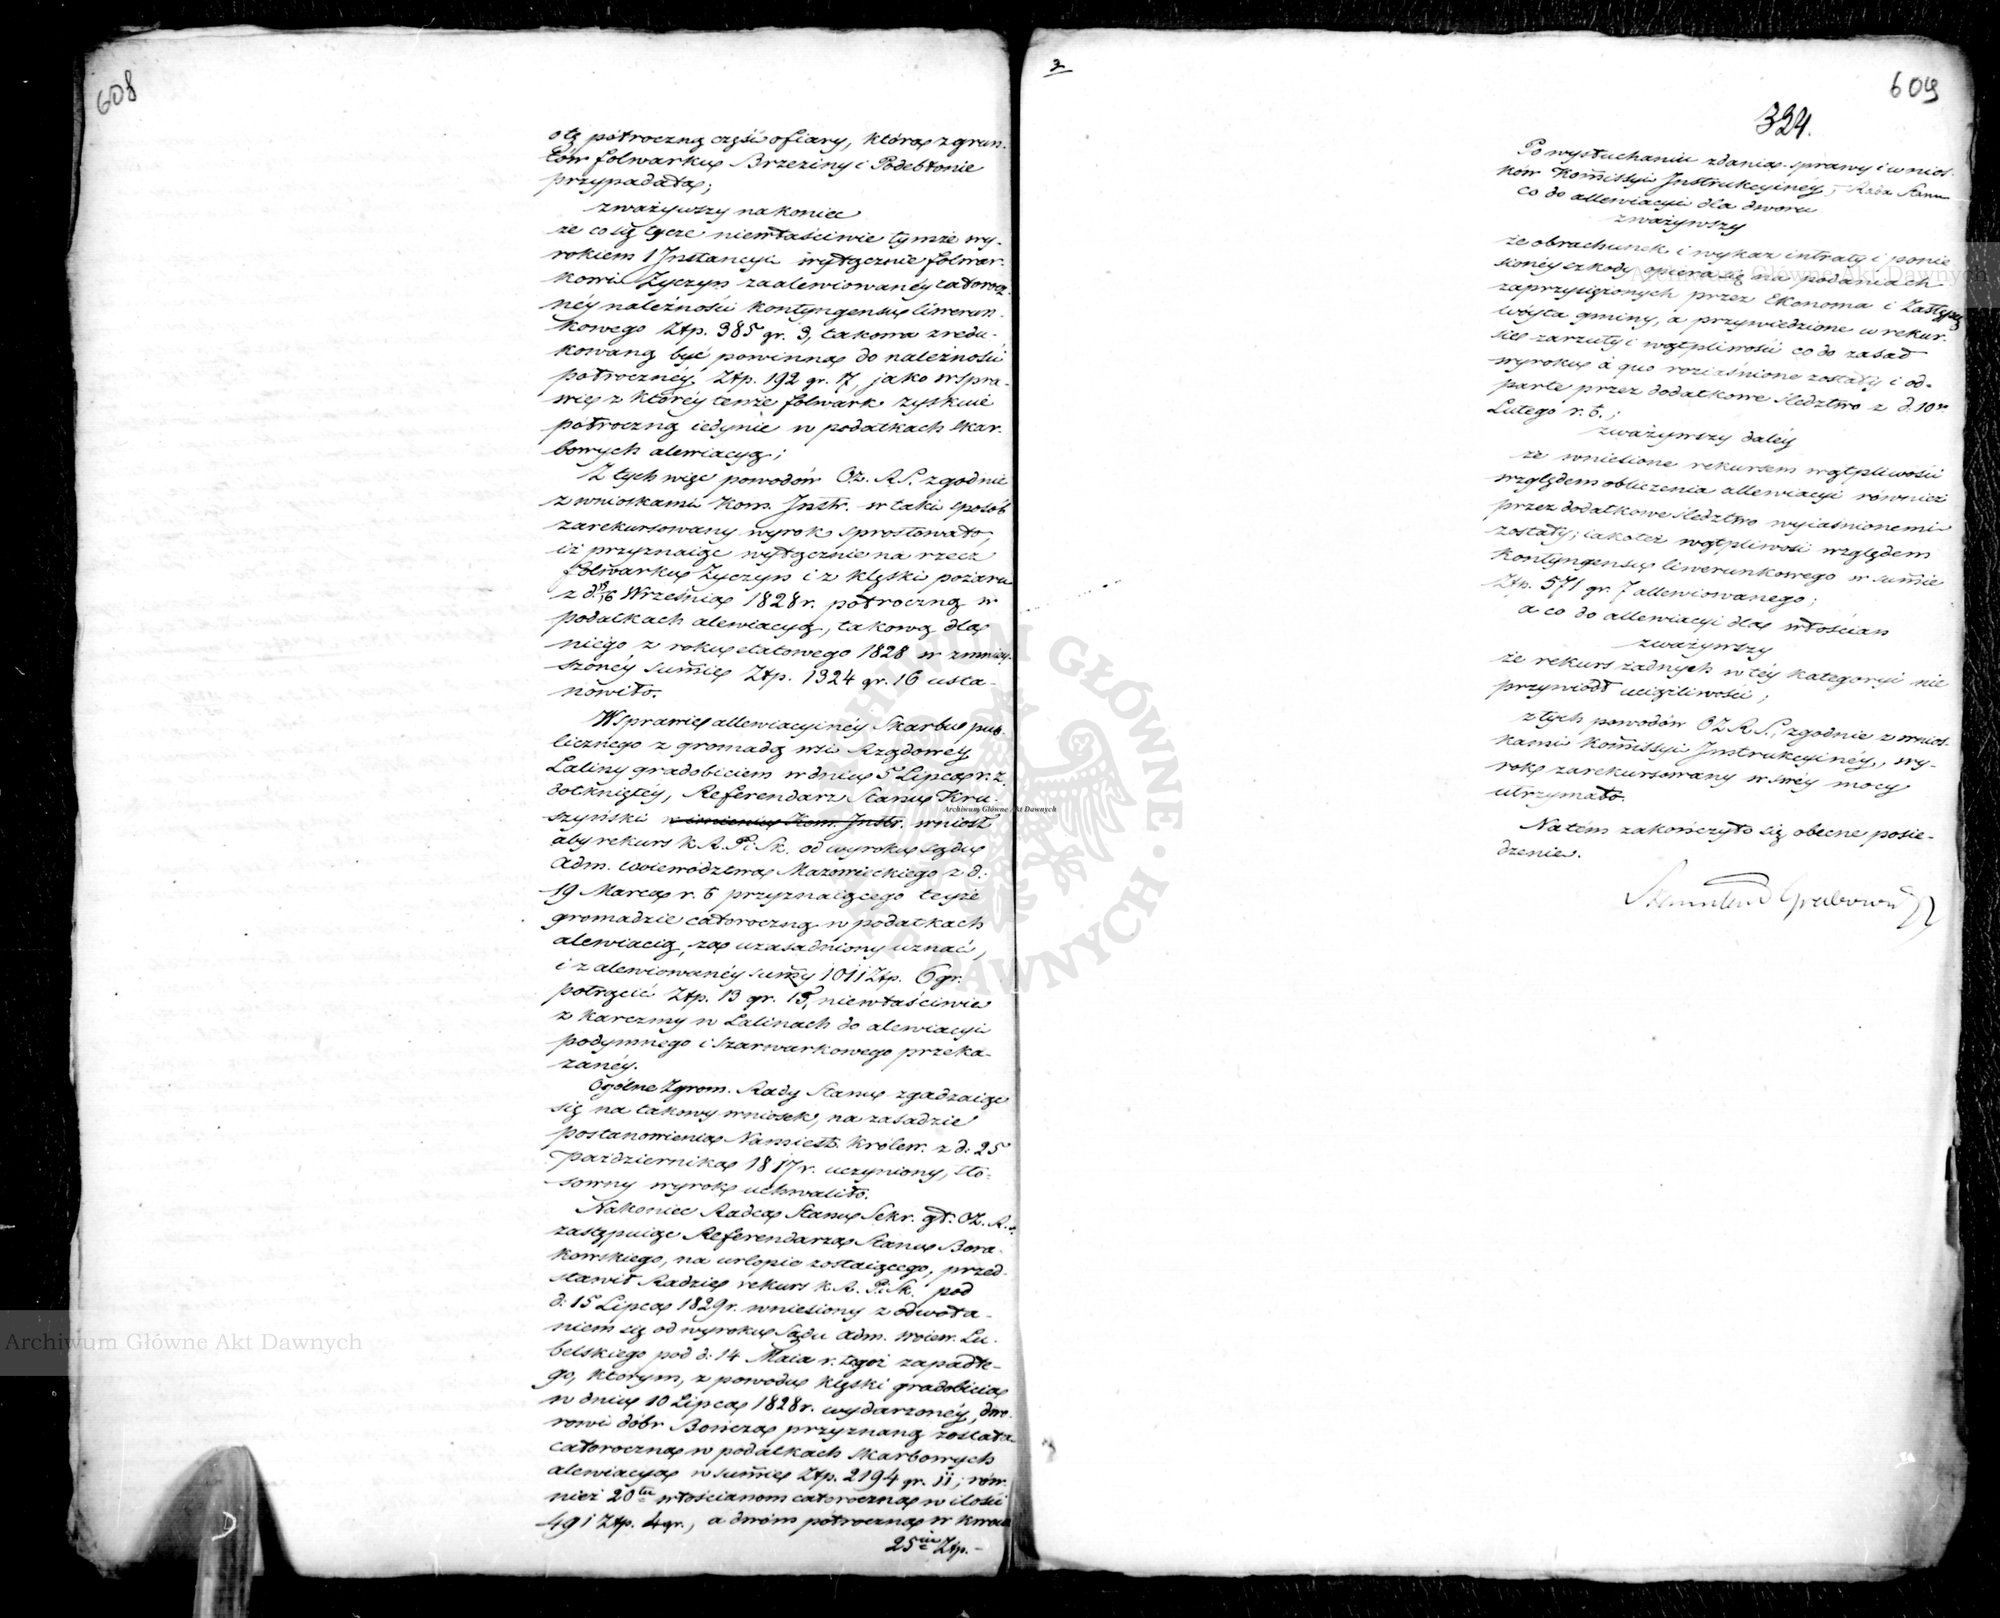 608
o tę półroczną część ofiary, która z grun-
tów folwarku Brzeziny i Podebłonie
przypadała;
zważywszy na koniec
że co się tycze niewłaściwie tymże wy-
rokiem 1 Instancyi wyłącznie folwar-
kowi Zyczyn zaalewiowanéy całorocz-
néy należności kontyngensu liwerun-
kowego Złp. 385 gr. 3, takowa zredu-
kowaną być powinna do należności
półrocznéy Złp. 192 gr. 17, jako w spra-
wie z któréy tenże folwark zyskuie
półroczną iedynie w podatkach skar-
bowych alewiacyą;
Z tych więc powodów OZ. R.S. zgodnie
z wnioskami Kom. Instr. w taki sposób
zarekursowany wyrok sprostowało,
iż przyznaiąc wyłącznie na rzecz
folwarku Zyczyn i z klęski pożaru
z d. 15/16 Września 1828 r. półroczną w
podatkach alewiacyą, takową dla
niego z roku etatowego 1828 w zmniey-
szonéy summie Złp. 1324 gr. 16 usta-
nowiło.
W sprawie allewiacyinéy Skarbu pub-
licznego z gromadą wsi Rządowey
Laliny gradobiciem w dniu 5 Lipca r. z.
dotkniętéy, Referendarz Stanu Kru-
szyński w imieniu Kom. Instr. wniosł
aby rekurs K. R. P. i Sk. od wyroku sądu
Adm. Woiewództwa Mazowieckiego z d.
19 Marca r. b. przyznaiącego teyże
gromadzie całoroczną w podatkach
alewiacią, za uzasadniony uznać,
i z alewiowanéy summy 1011 Złp. 6 gr.
potrącić Złp. 13 gr. 15, niewłaściwie
z karczmy w Lalinach do alewiacyi
podymnego i szarwarkowego przeka-
zanéy.
Ogólne Zgrom. Rady Stanu zgadzaiąc
się na takowy wniosek, na zasadzie
postanowienia Namiest. Królew. z d. 25
Października 1817 r. uczyniony, sto-
sowny wyrok uchwaliło.
Nakoniec Radca Stanu Sekr. gł. OZ. R. S.
zastępuiąc Referendarza Stanu Bora-
kowskiego, na urlopie zostaiącego, przed-
stawił Radzie rekurs K. R. P. i Sk. pod
d. 15 Lipca 1829 r. wniesiony z odwoła-
niem się od wyroku Sądu Adm. Woiew. Lu-
belskiego pod d. 14 Maia r. tegoż zapadłe-
go, którym, z powodu klęski gradobicia
w dniu 10 Lipca 1828 r. wydarzonéy, dwo-
rowi dóbr Bończa przyznaną została
całoroczna w podatkach skarbowych
alewiacya w summie Złp. 2194 gr. 11; rów-
nież 20tu włościanom całoroczna w ilości
491 Złp. 4 gr., a dwóm półroczna w kwocie
25iu Złp.-
3
609
324.
Po wysłuchaniu zdania sprawy i wnios-
ków Kommissyi Instrukcyinéy, Rada Stanu
co do allewiacyi dla dworu
zważywszy
że obrachunek i wykaz intraty i ponie-
sionéy szkody opiera się na podaniach
zaprzysiężonych przez Ekonoma i Zastępcę
wóyta gminy, a przywiedzione w rekur-
sie zarzuty i wątpliwości co do zasad
wyroku à quo roziaśnione zostały i od-
parte przez dodatkowe śledztwo z d. 10go
Lutego r. b.;
zważywszy daléy
że wniesione rekursem wątpliwości
względem obliczenia allewiacyi również
przez dodatkowe śledztwo wyiaśnionemi
zostały; iakoteż wątpliwości względem
kontyngensu liwerunkowego w summie
Złp. 571 gr. 7 allewiowanego;
a co do allewiacyi dla włościan
zważywszy
że rekurs żadnych w téy kategoryi nie
przywiódł uciążliwości;
z tych powodów OZ. R. S., zgodnie z wnios-
kami Kommissyi Instrukcyinéy, wy-
rok zarekursowany w swéy mocy
utrzymało.
Na tém zakończyło się obecne posie-
dzenie.
Grabowski
ARCHIWUM GŁÓWNE AKT DAWNYCH
Archiwum Główne Akt Dawnych
Archiwum Główne Akt Dawnych
Archiwum Główne Akt Dawnych